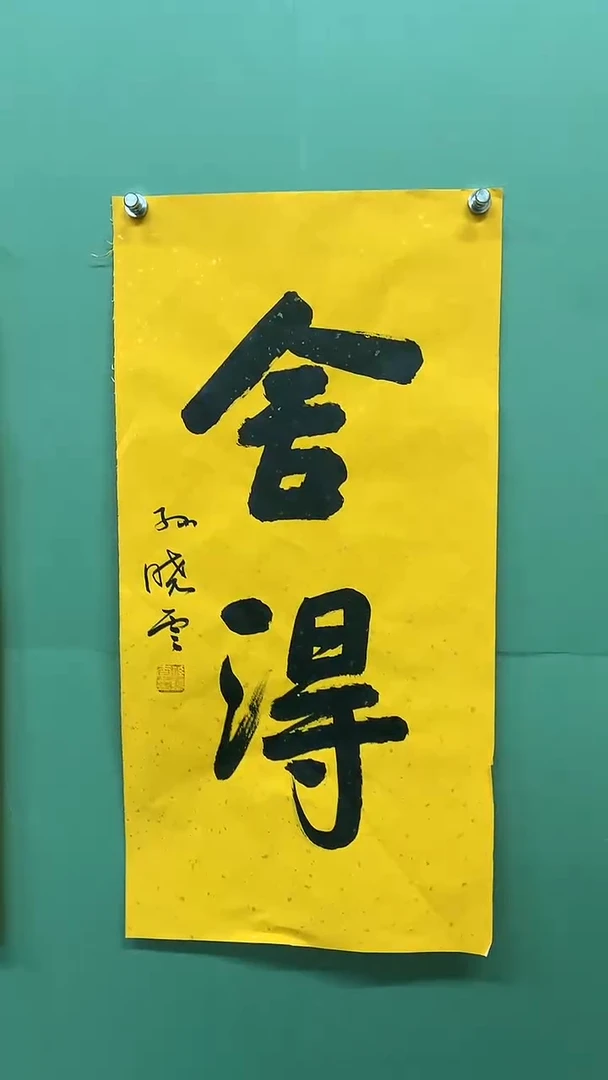 舍得
孙晓云